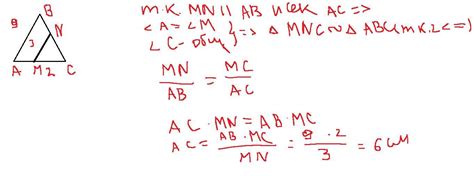 B
9
3
N
A M 2 C
т.к. MN || AB и сек AC =>
<A = <M
<C - общ } => △ MNC ~ △ ABC (т.к. 2 <=)
MN / AB = MC / AC
AC · MN = AB · MC
AC = AB · MC / MN = 9 · 2 / 3 = 6 см